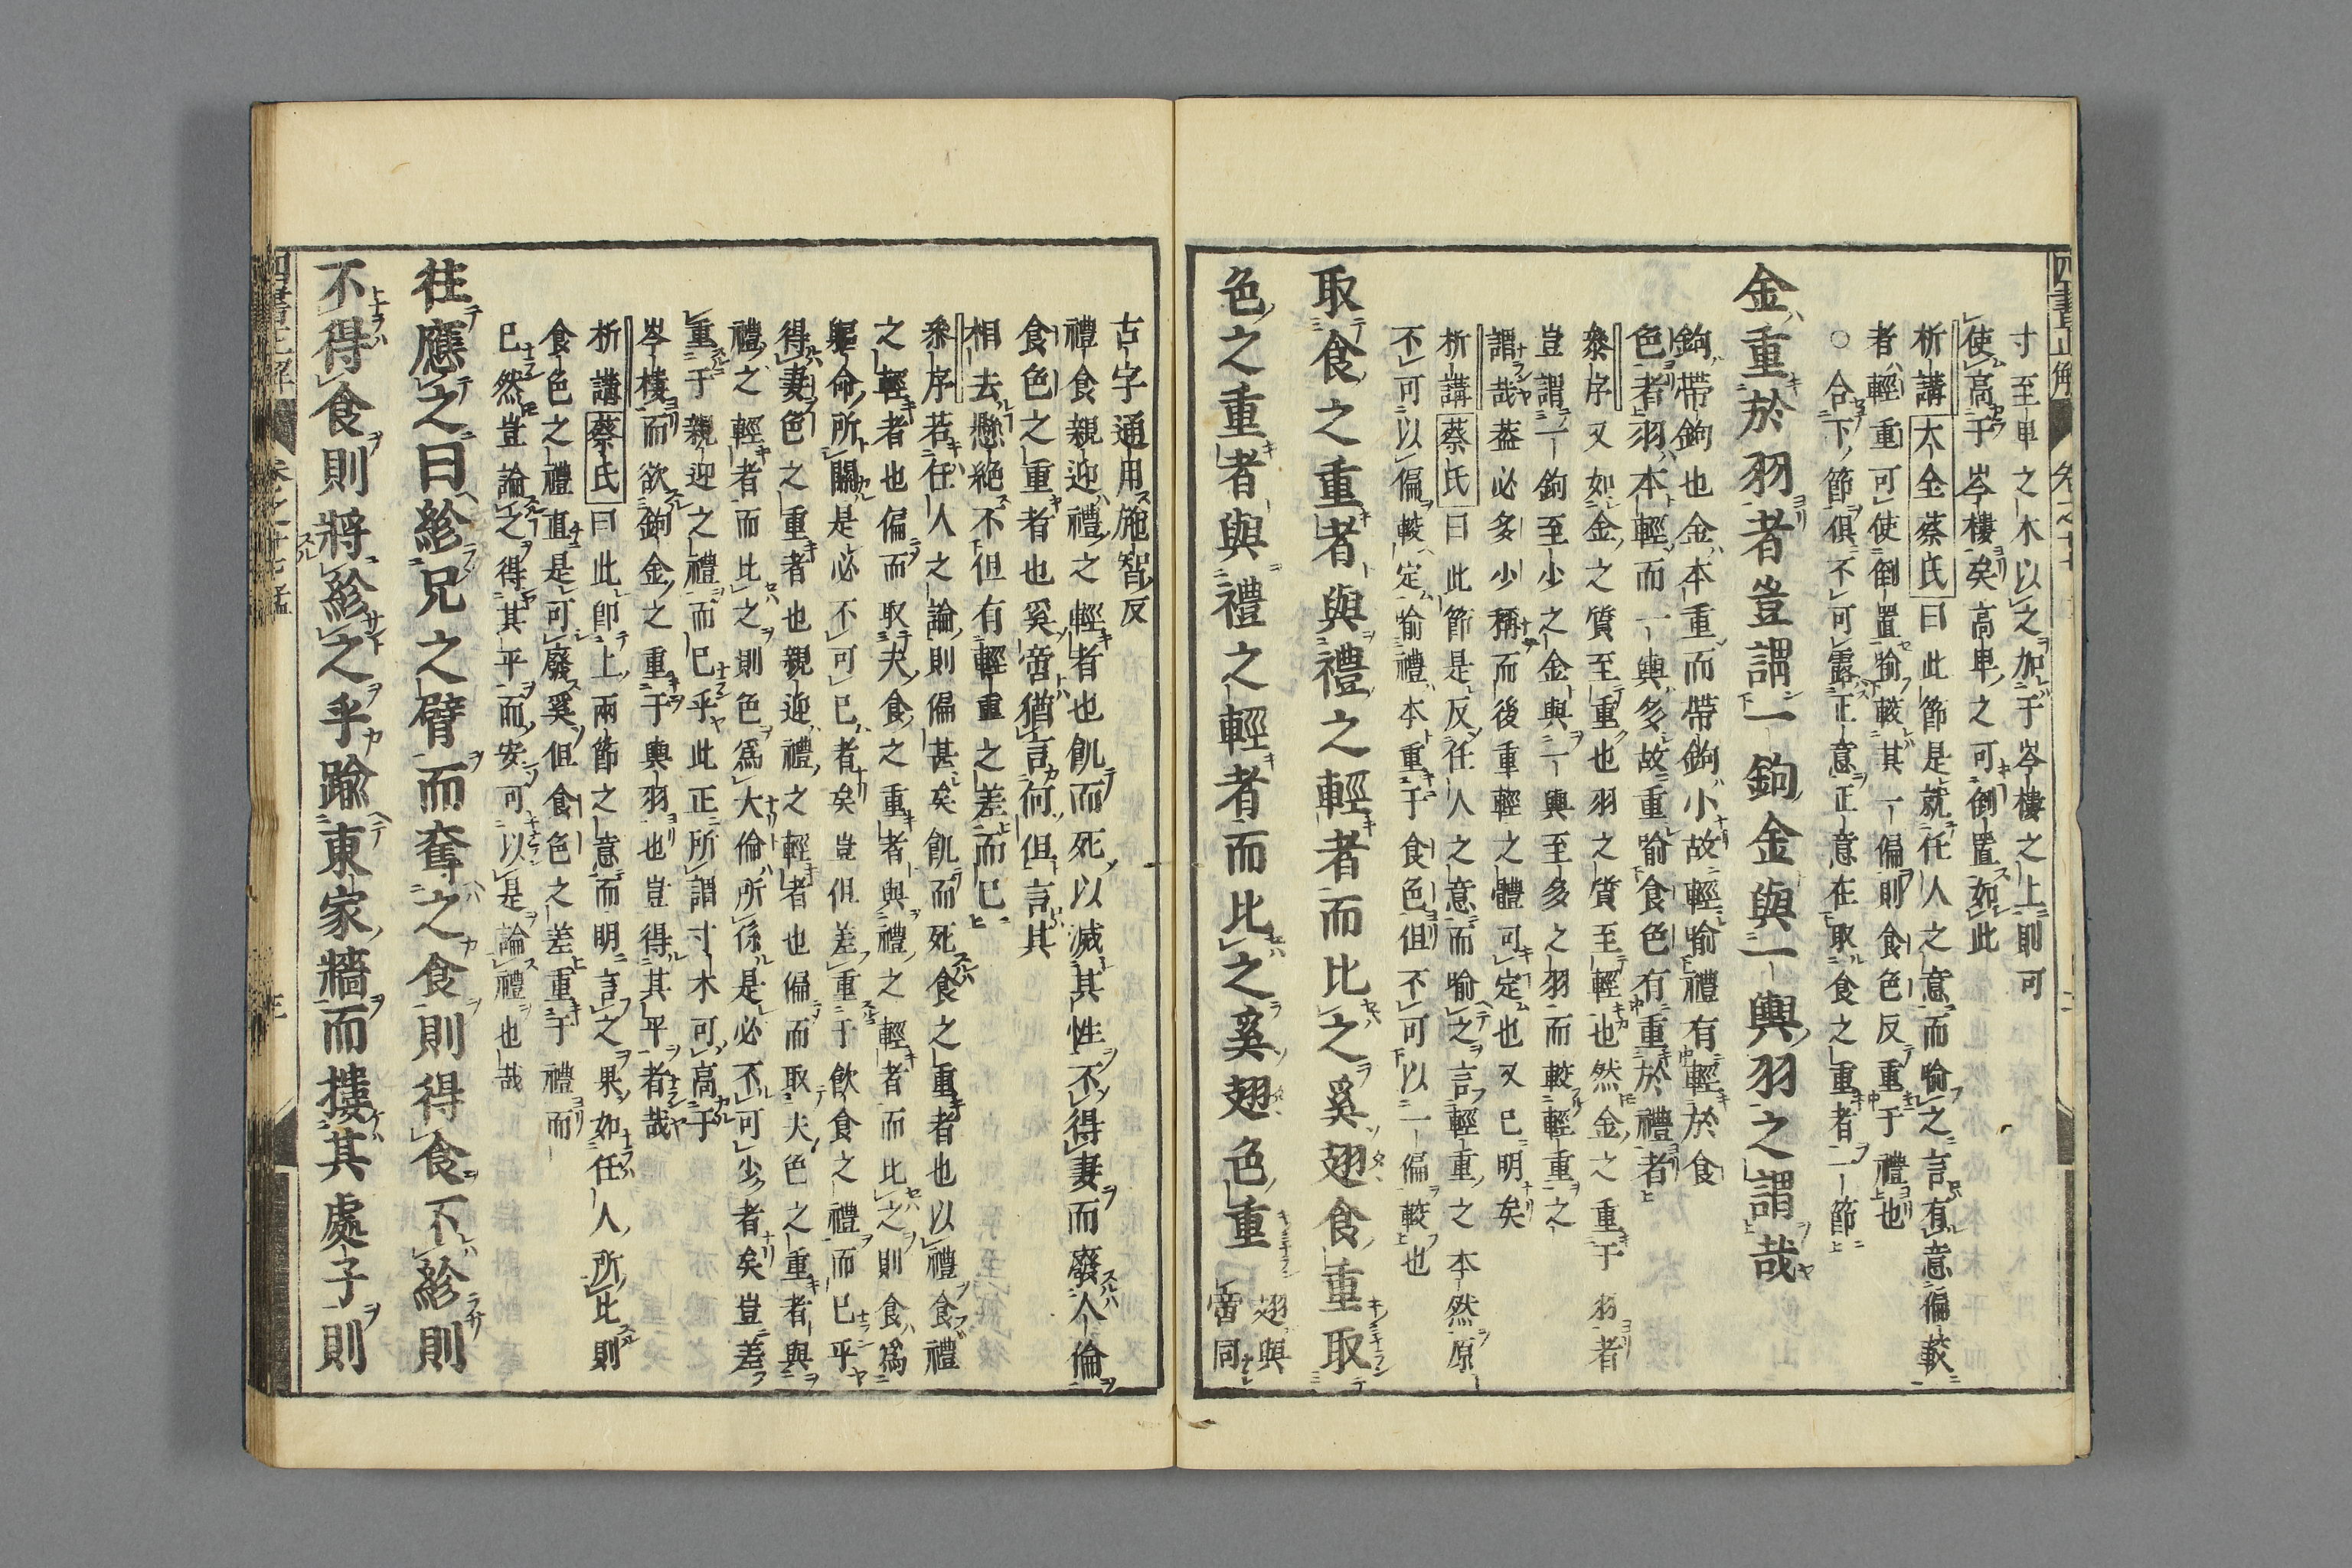 四書正解
寸至卑之木以之加于岑樓之上則可
使高于岑樓矣高卑之可倒置如此
析講大全蔡氏曰此節是就任人之意而喻之言有意偏較
者輕重可使倒置喻較其一偏則食色反重于禮也
○合下節俱不可露正意正意在取食之重者二節
金重於羽者豈謂一鉤金與一輿羽之謂哉
鉤帶鉤也金本重而帶鉤小故輕喻禮有輕於食
色者羽本輕而一輿多故重喻食色有重於禮者
叅序又如金之質至重也羽之質至輕也然金之重于羽者
豈謂一鉤至少之金與一輿至多之羽而較輕重之
謂哉葢必多少稱而後重輕之體可定也又已明矣
析講蔡氏曰此節是反任人之意而喻之言輕重之本然原
不可以偏較定喻禮本重于食色但不可以一偏較也
取食之重者與禮之輕者而比之奚翅食重取
色之重者與禮之輕者而比之奚翅色重 翅與
啻同
古字通用施智反
禮食親迎禮之輕者也飢而死以滅其性不得妻而廢人倫
食色之重者也奚啻猶言何但言其
相去懸絶不但有輕重之差而已
叅序若任人之論則偏甚矣飢而死食之重者也以禮食禮
之輕者也偏而取夫食之重者與禮之輕者而比之則食爲
軀命所關是必不可已者矣豈但差重于飲食之禮而已乎
得妻色之重者也親迎禮之輕者也偏而取夫色之重者與
禮之輕者而比之則色爲大倫所係是必不可少者矣豈差
重于親迎之禮而已乎此正所謂寸木可高于
岑樓而欲鉤金之重于輿羽也豈得其平者哉
析講蔡氏曰此卽上兩節之意而明言之果如任人所比則
食色之禮直是可廢奚但食色之差重于禮而
已然豈論之得其平而安可以是論禮也哉
往應之曰紾兄之臂而奪之食則得食不紾則
不得食則將紾之乎踰東家牆而摟其處子則